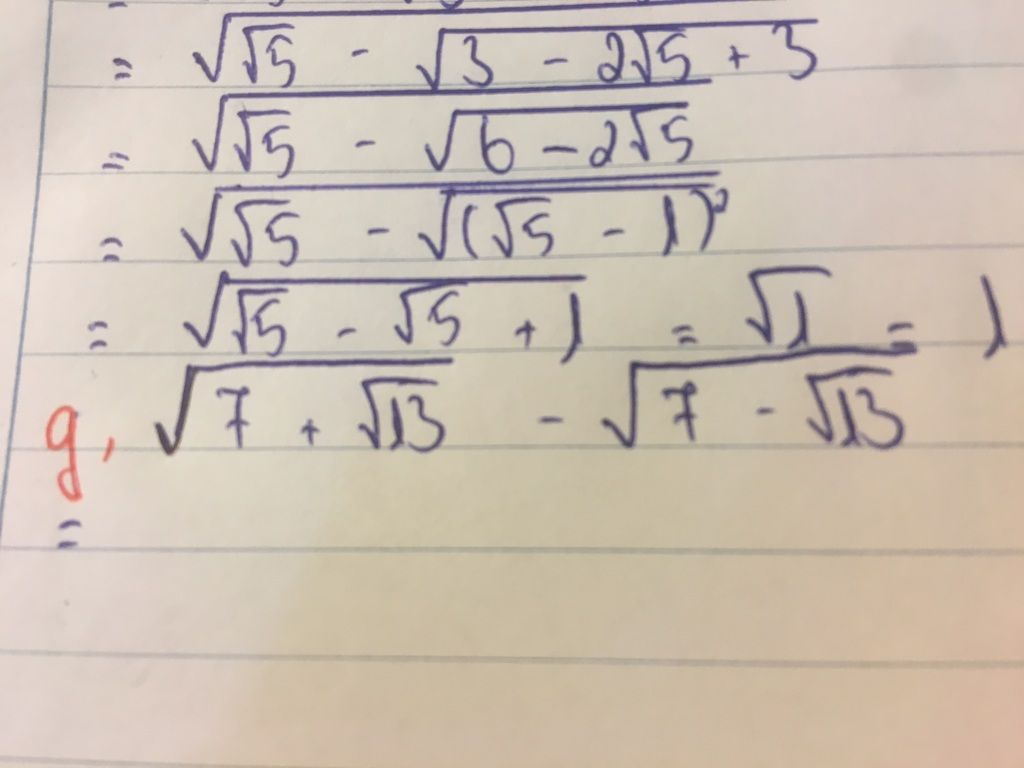 = √(√5 - √(3 - 2√5 + 3))
= √(√5 - √(6 - 2√5))
= √(√5 - √((√5 - 1)²))
= √(√5 - √5 + 1) = √1 = 1
g, √(7 + √13) - √(7 - √13)
=